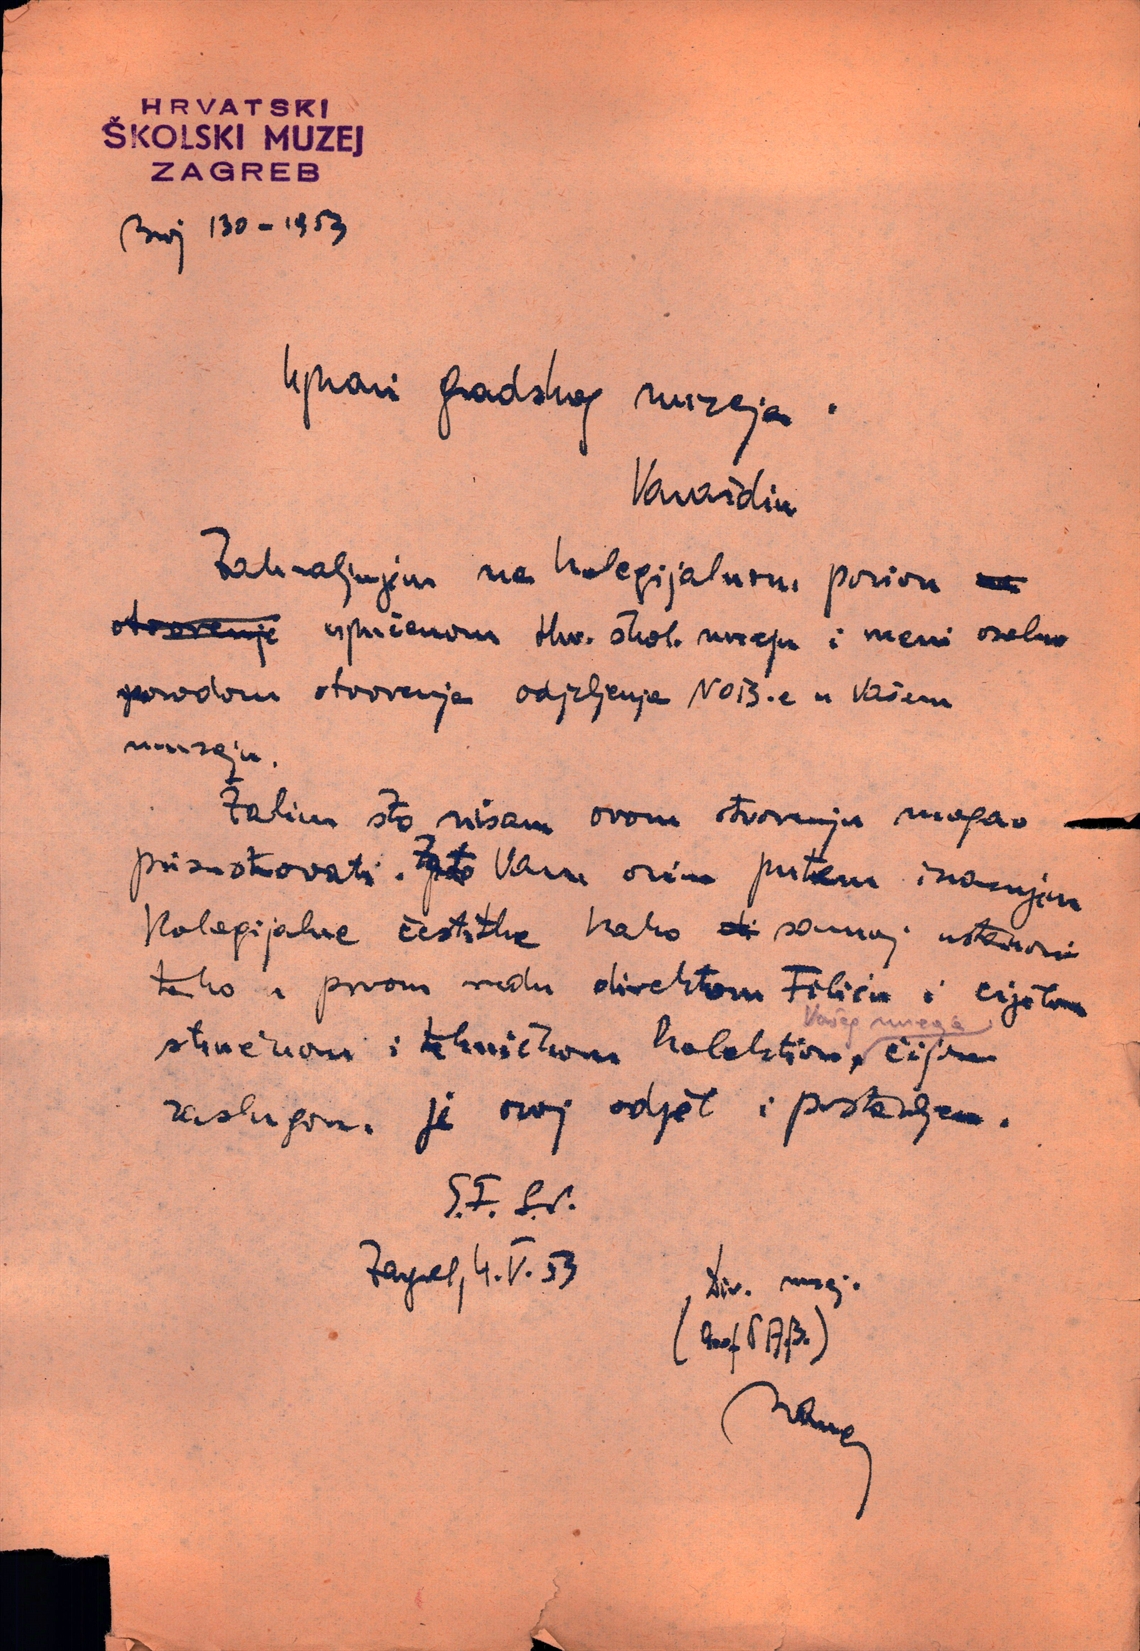 HRVATSKI
ŠKOLSKI MUZEJ
ZAGREB
Broj 130-1953
Upravi gradskog muzeja.
Varaždin
Zahvaljujem na kolegijalnom pozivu na
otvorenje upućenom Hrv. škol. muzeju i meni osobno
povodom otvorenja odjeljenja NOB-e u Vašem
muzeju.
Žalim što nisam ovom otvorenju mogao
prisustvovati. Zato Vam ovim putem izrazujem
kolegijalne čestitke kako samoj ustanovi
tako u prvom redu direktoru Filiću i cijelom
Vašeg muzeja
stručnom i tehničkom kolektivu, čijom
zaslugom je ovaj odjel i postavljen.
S.F. S.N.
Zagreb, 4.V.53
Dir. muzeja.